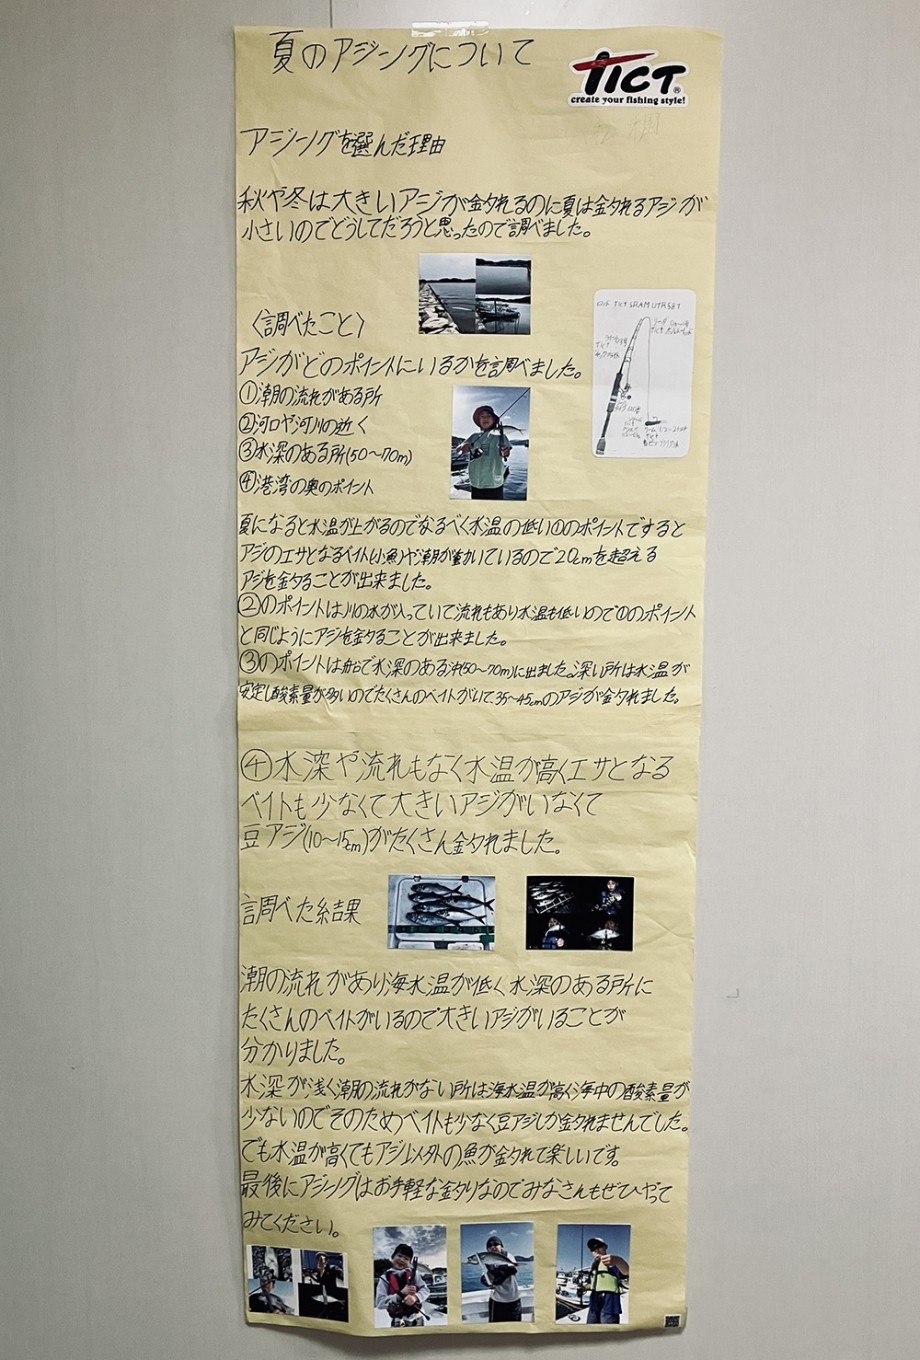 夏のアジングについて
TICT®
create your fishing style!
アジングを選んだ理由
秋や冬は大きいアジが釣れるのに夏は釣れるアジが
小さいのでどうしてだろうと思ったので調べました。
〈調べたこと〉
アジがどのポイントにいるかを調べました。
①潮の流れがある所
②河口や河川の近く
③水深のある所(50〜70m)
④港湾の奥のポイント
ロッド TICT SRAM UTR 581
夏になると水温が上がるのでなるべく水温の低い①のポイントですると
アジのエサとなるベイト(小魚)や潮が動いているので20cmを超える
アジを釣ることが出来ました。
②のポイントは川の水が入っていて流れもあり水温も低いので①のポイント
と同じようにアジを釣ることが出来ました。
③のポイントは船で水深のある沖(50〜70m)に出ました。深い所は水温が
安定し酸素量が多いのでたくさんのベイトがいて35〜45cmのアジが釣れました。
④水深や流れもなく水温が高くエサとなる
ベイトも少なくて大きいアジがいなくて
豆アジ(10〜15cm)がたくさん釣れました。
調べた結果
潮の流れがあり海水温が低く水深のある所に
たくさんのベイトがいるので大きいアジがいることが
分かりました。
水深が浅く潮の流れがない所は海水温が高く海中の酸素量が
少ないのでそのためベイトも少なく豆アジしか釣れませんでした。
でも水温が高くてもアジ以外の魚が釣れて楽しいです。
最後にアジングはお手軽な釣りなのでみなさんもぜひやって
みてください。